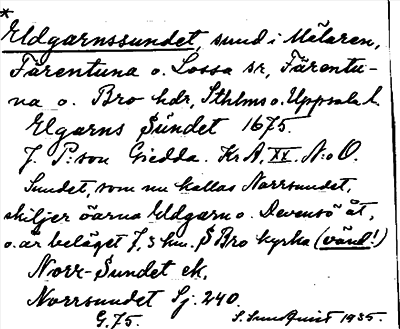 *
Eldgarnssundet, sund i Mälaren,
Färentuna o. Lossa sr, Färentu-
na o. Bro hdr, Sthlms o. Uppsala l.
Elgarns Sundet 1675.
J. P:son Giedda. Kr A, XX. N:o O.
Sundet, som nu kallas Norrsundet,
skiljer öarna Eldgarn o. Devensö åt,
o. är beläget 7,5 km. S Bro kyrka (vänd!)
Norr-Sundet ek.
Norrsundet Sj. 240.
G. 75. S. Sundquist 1935.